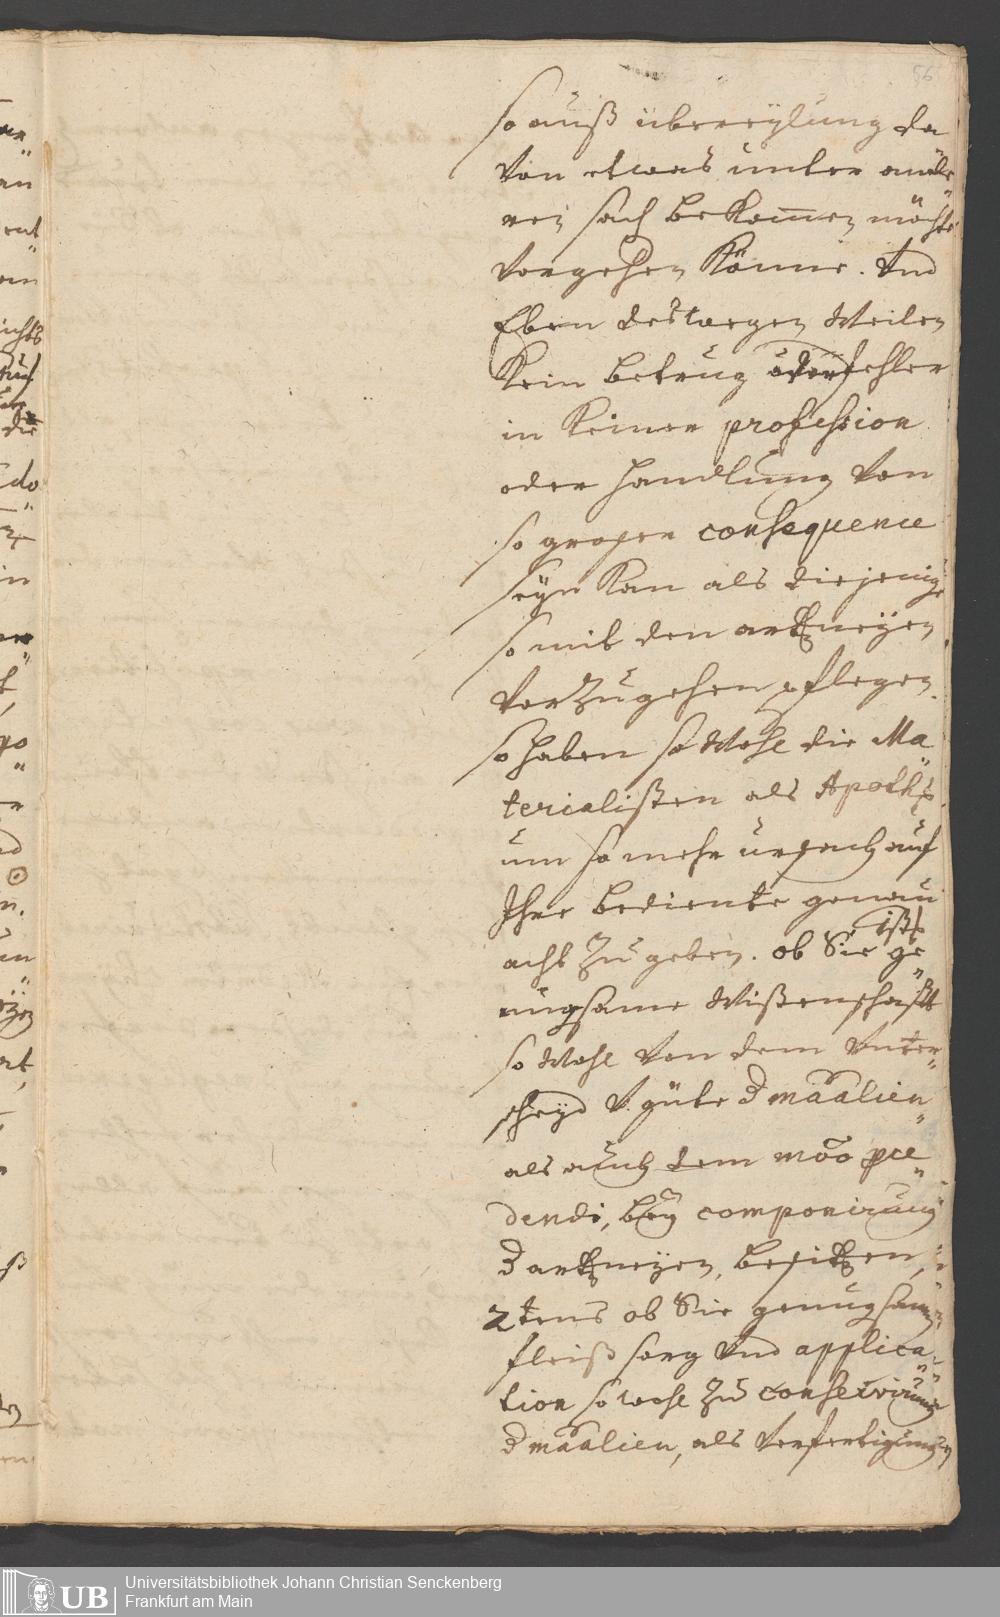 56
so auß übereylung da
von etwas unter ande
rer sach bekom̅en möchte
vorgehen könne. Und
Eben destwegen weilen
kein betrug oder fehler
in keiner profession
oder handlung von
so großer consequence
seyn kan als diejenige
so mit den artzneyen
vorzugehen pflegen
so haben so wohl die Ma„
terialisten als Apothr
um so mehr ursach auf
Ihre bediente genau
acht zu geben. ob Sie 1st ge„
nugsame Wißenschafft
so wohl von dem Unter„
scheyd v. güte d maalien„
als auch dem mõo pce„
dendi, bey componirung
d artzneyen, besitzen,
2tens ob Sie genugsam
fleiß sorg und applica„
tion so wohl zu conservirung
d maalien, als verfertigung
Universitätsbibliothek Johann Christian Senckenberg
Frankfurt am Main
UB